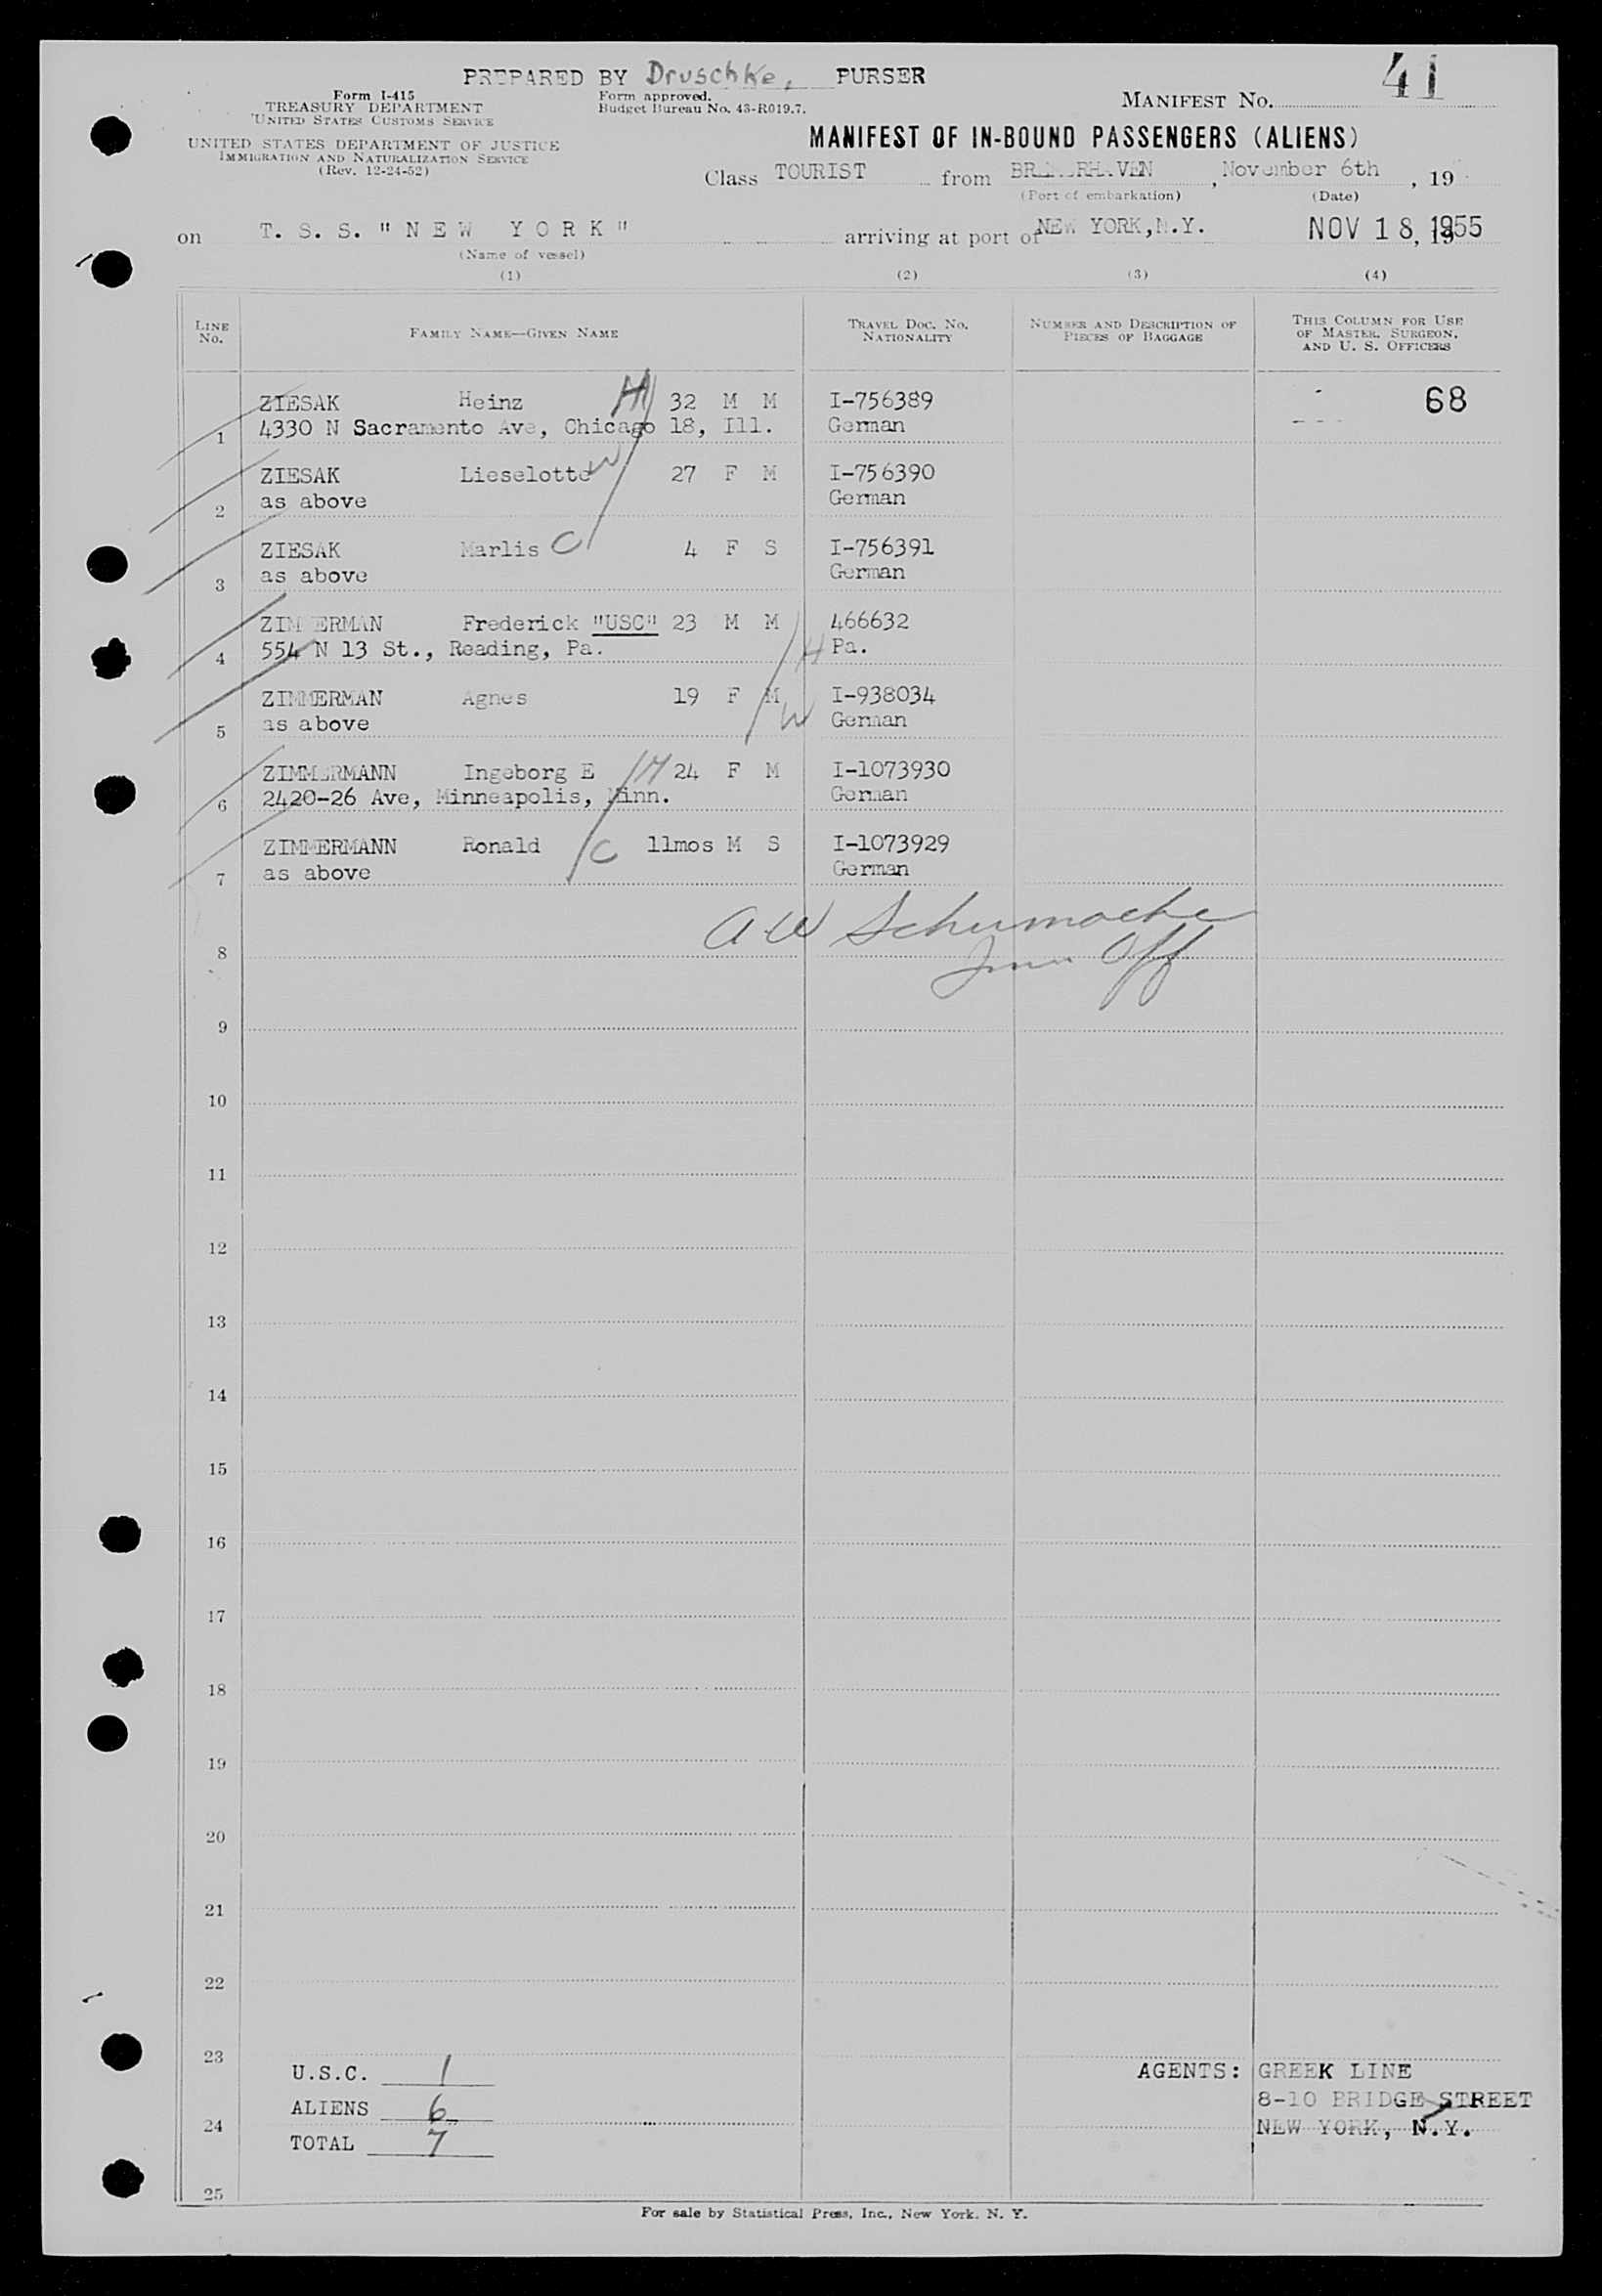 PREPARED BY Druschke, PURSER
41
Form I-415
TREASURY DEPARTMENT
UNITED STATES CUSTOMS SERVICE
Form approved.
Budget Bureau No. 43-R019.7.
MANIFEST NO.
UNITED STATES DEPARTMENT OF JUSTICE
IMMIGRATION AND NATURALIZATION SERVICE
(Rev. 12-24-52)
MANIFEST OF IN-BOUND PASSENGERS (ALIENS)
Class TOURIST from BREMERHAVEN, November 6th, 19
(Port of embarkation) (Date)
on T. S. S. "NEW YORK" arriving at port of NEW YORK, N.Y. NOV 18, 1955
(Name of vessel)
(1) (2) (3) (4)
LINE NO.
FAMILY NAME—GIVEN NAME
TRAVEL DOC. NO.
NATIONALITY
NUMBER AND DESCRIPTION OF
PIECES OF BAGGAGE
THIS COLUMN FOR USE
OF MASTER, SURGEON,
AND U. S. OFFICERS
ZIESAK Heinz H 32 M M I-756389 68
1 4330 N Sacramento Ave, Chicago 18, Ill. German
ZIESAK Lieselotte W 27 F M I-756390
2 as above German
ZIESAK Marlis C 4 F S I-756391
3 as above German
ZIMMERMAN Frederick "USC" 23 M M 466632
4 554 N 13 St., Reading, Pa. H Pa.
ZIMMERMAN Agnes 19 F M I-938034
5 as above W German
ZIMMERMANN Ingeborg E M 24 F M I-1073930
6 2420-26 Ave, Minneapolis, Minn. German
ZIMMERMANN Ronald C 11mos M S I-1073929
7 as above German
A W Schumache
Imm Off
8
9
10
11
12
13
14
15
16
17
18
19
20
21
22
23
U.S.C. 1
AGENTS: GREEK LINE
ALIENS 6
8-10 BRIDGE STREET
24
NEW YORK, N.Y.
TOTAL 7
25
For sale by Statistical Press, Inc., New York, N. Y.